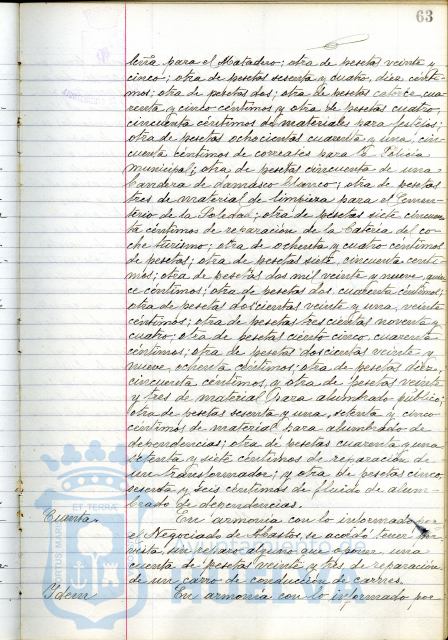 63
leña para el Matadero; otra de pesetas veinte y
cinco; otra de pesetas sesenta y cuatro, diez cénti-
mos; otra de pesetas dos; otra de pesetas catorce cua-
renta y cinco céntimos y otra de pesetas cuatro,
cincuenta céntimos de materiales para
otra de pesetas ochocientas cuarenta y una, cin-
cuenta céntimos de correajes para la Policia
municipal; otra de pesetas cincuenta de una
bandera de damasco blanco; otra de pesetas
tres de material de limpieza para el Cemen-
terio de la Soledad; otra de pesetas siete cincuen-
ta céntimos de reparación de la bateria del co-
che turismo; otra de ochenta y cuatro céntimos
de pesetas; otra de pesetas siete, cincuenta cénti-
mos; otra de pesetas dos mil veinte y nueve, quin-
ce céntimos; otra de pesetas dos cuarenta céntimos;
otra de pesetas doscientas veinte y una, veinte
céntimos; otra de pesetas trescientas noventa y
cuatro; otra de pesetas ciento cinco, cuarenta
céntimos; otra de pesetas doscientas veinte y
nueve, ochenta céntimos; otra de pesetas diez,
cincuenta céntimos, y otra de pesetas veinte
y tres de material para alumbrado público;
otra de pesetas sesenta y una, setenta y cinco
céntimos de material para alumbrado de
dependencias; otra de pesetas cuarenta y una
setenta y siete céntimos de reparación de
un transformador; y otra de pesetas cinco,
sesenta y seis céntimos de fluido de alum-
brado de dependencias.
Cuenta. En armonia con lo informado por
el Negociado de Abastos, se acordó tener por
vista, sin reparo alguno que oponer, una
cuenta de pesetas veinte y tres de reparación
de un carro de conducción de carnes.
Idem En armonia con lo informado por